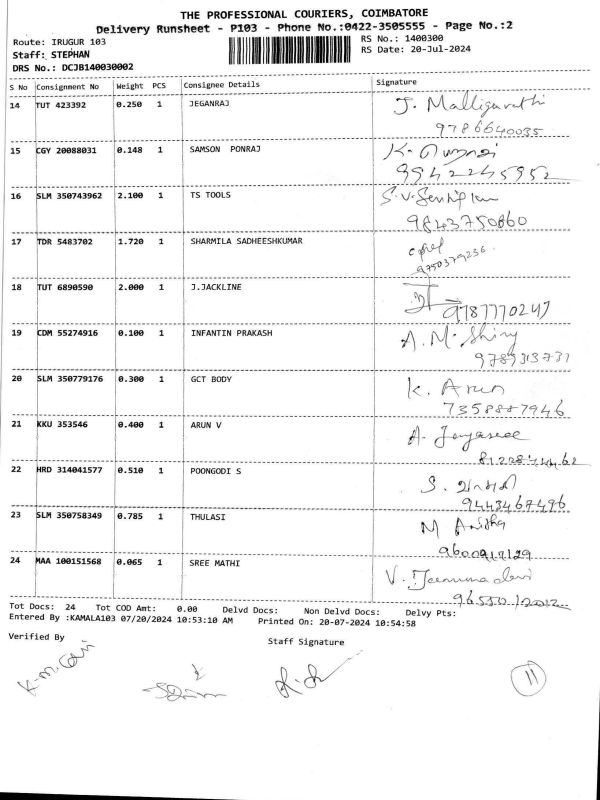 THE PROFESSIONAL COURIERS, COIMBATORE
Delivery Runsheet - P103 - Phone No.:0422-3505555 - Page No.:2
Route: IRUGUR 103 RS No.: 1400300
Staff: STEPHAN RS Date: 20-Jul-2024
DRS No.: DCJB140030002
S No Consignment No Weight PCS Consignee Details Signature
14 TUT 423392 0.250 1 JEGANRAJ J. Malligarathi
9786640035
15 CGY 20088031 0.148 1 SAMSON PONRAJ K.
9942245952
16 SLM 350743962 2.100 1 TS TOOLS S.V.
9843750860
17 TDR 5483702 1.720 1 SHARMILA SADHEESHKUMAR
9750379236
18 TUT 6890590 2.000 1 J.JACKLINE
9787770247
19 CDM 55274916 0.100 1 INFANTIN PRAKASH A.M. Shiny
20 SLM 350779176 0.300 1 GCT BODY K. Arun
7358887946
21 KKU 353546 0.400 1 ARUN V A. Jeyasree
22 HRD 314041577 0.510 1 POONGODI S S.
9443467496
23 SLM 350758349 0.785 1 THULASI M Anisha
24 MAA 100151568 0.065 1 SREE MATHI V.
Tot Docs: 24 Tot COD Amt: 0.00 Delvd Docs: Non Delvd Docs: Delvy Pts:
Entered By :KAMALA103 07/20/2024 10:53:10 AM Printed On: 20-07-2024 10:54:58
Verified By Staff Signature
11